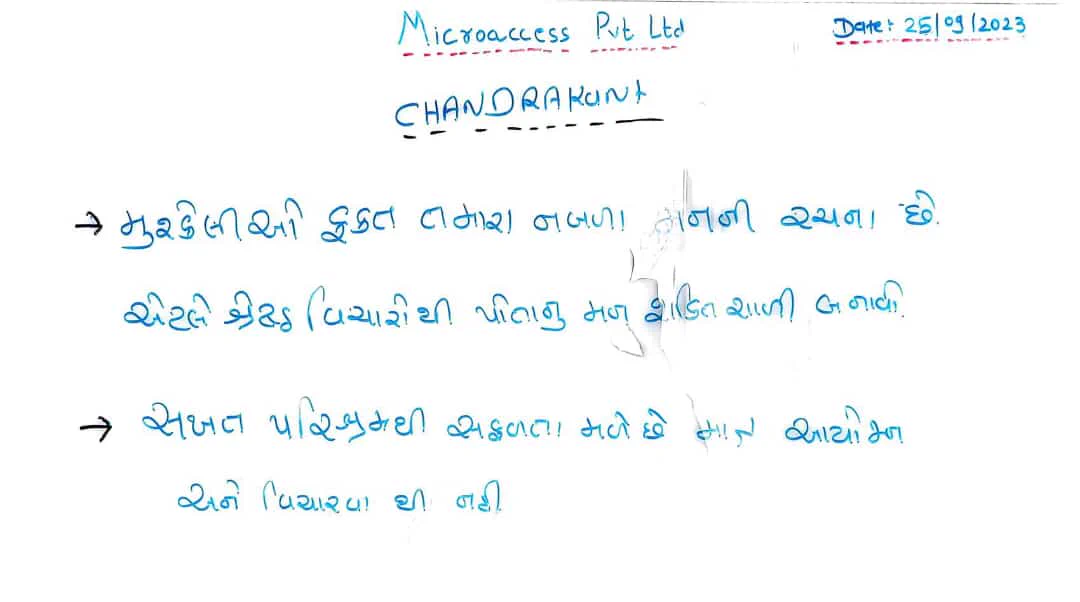 Microaccess Pvt Ltd
Date: 25/09/2023
CHANDRAKANT
→ મુશ્કેલીઓ ફકત તમારા નબળા મનની રચના છે.
એટલે શ્રેષ્ઠ વિચારોથી પોતાનુ મન શકિતશાળી બનાવો.
→ સખત પરિશ્રમથી સફળતા મળે છે માત્ર આયોજન
અને વિચારવા થી નહી